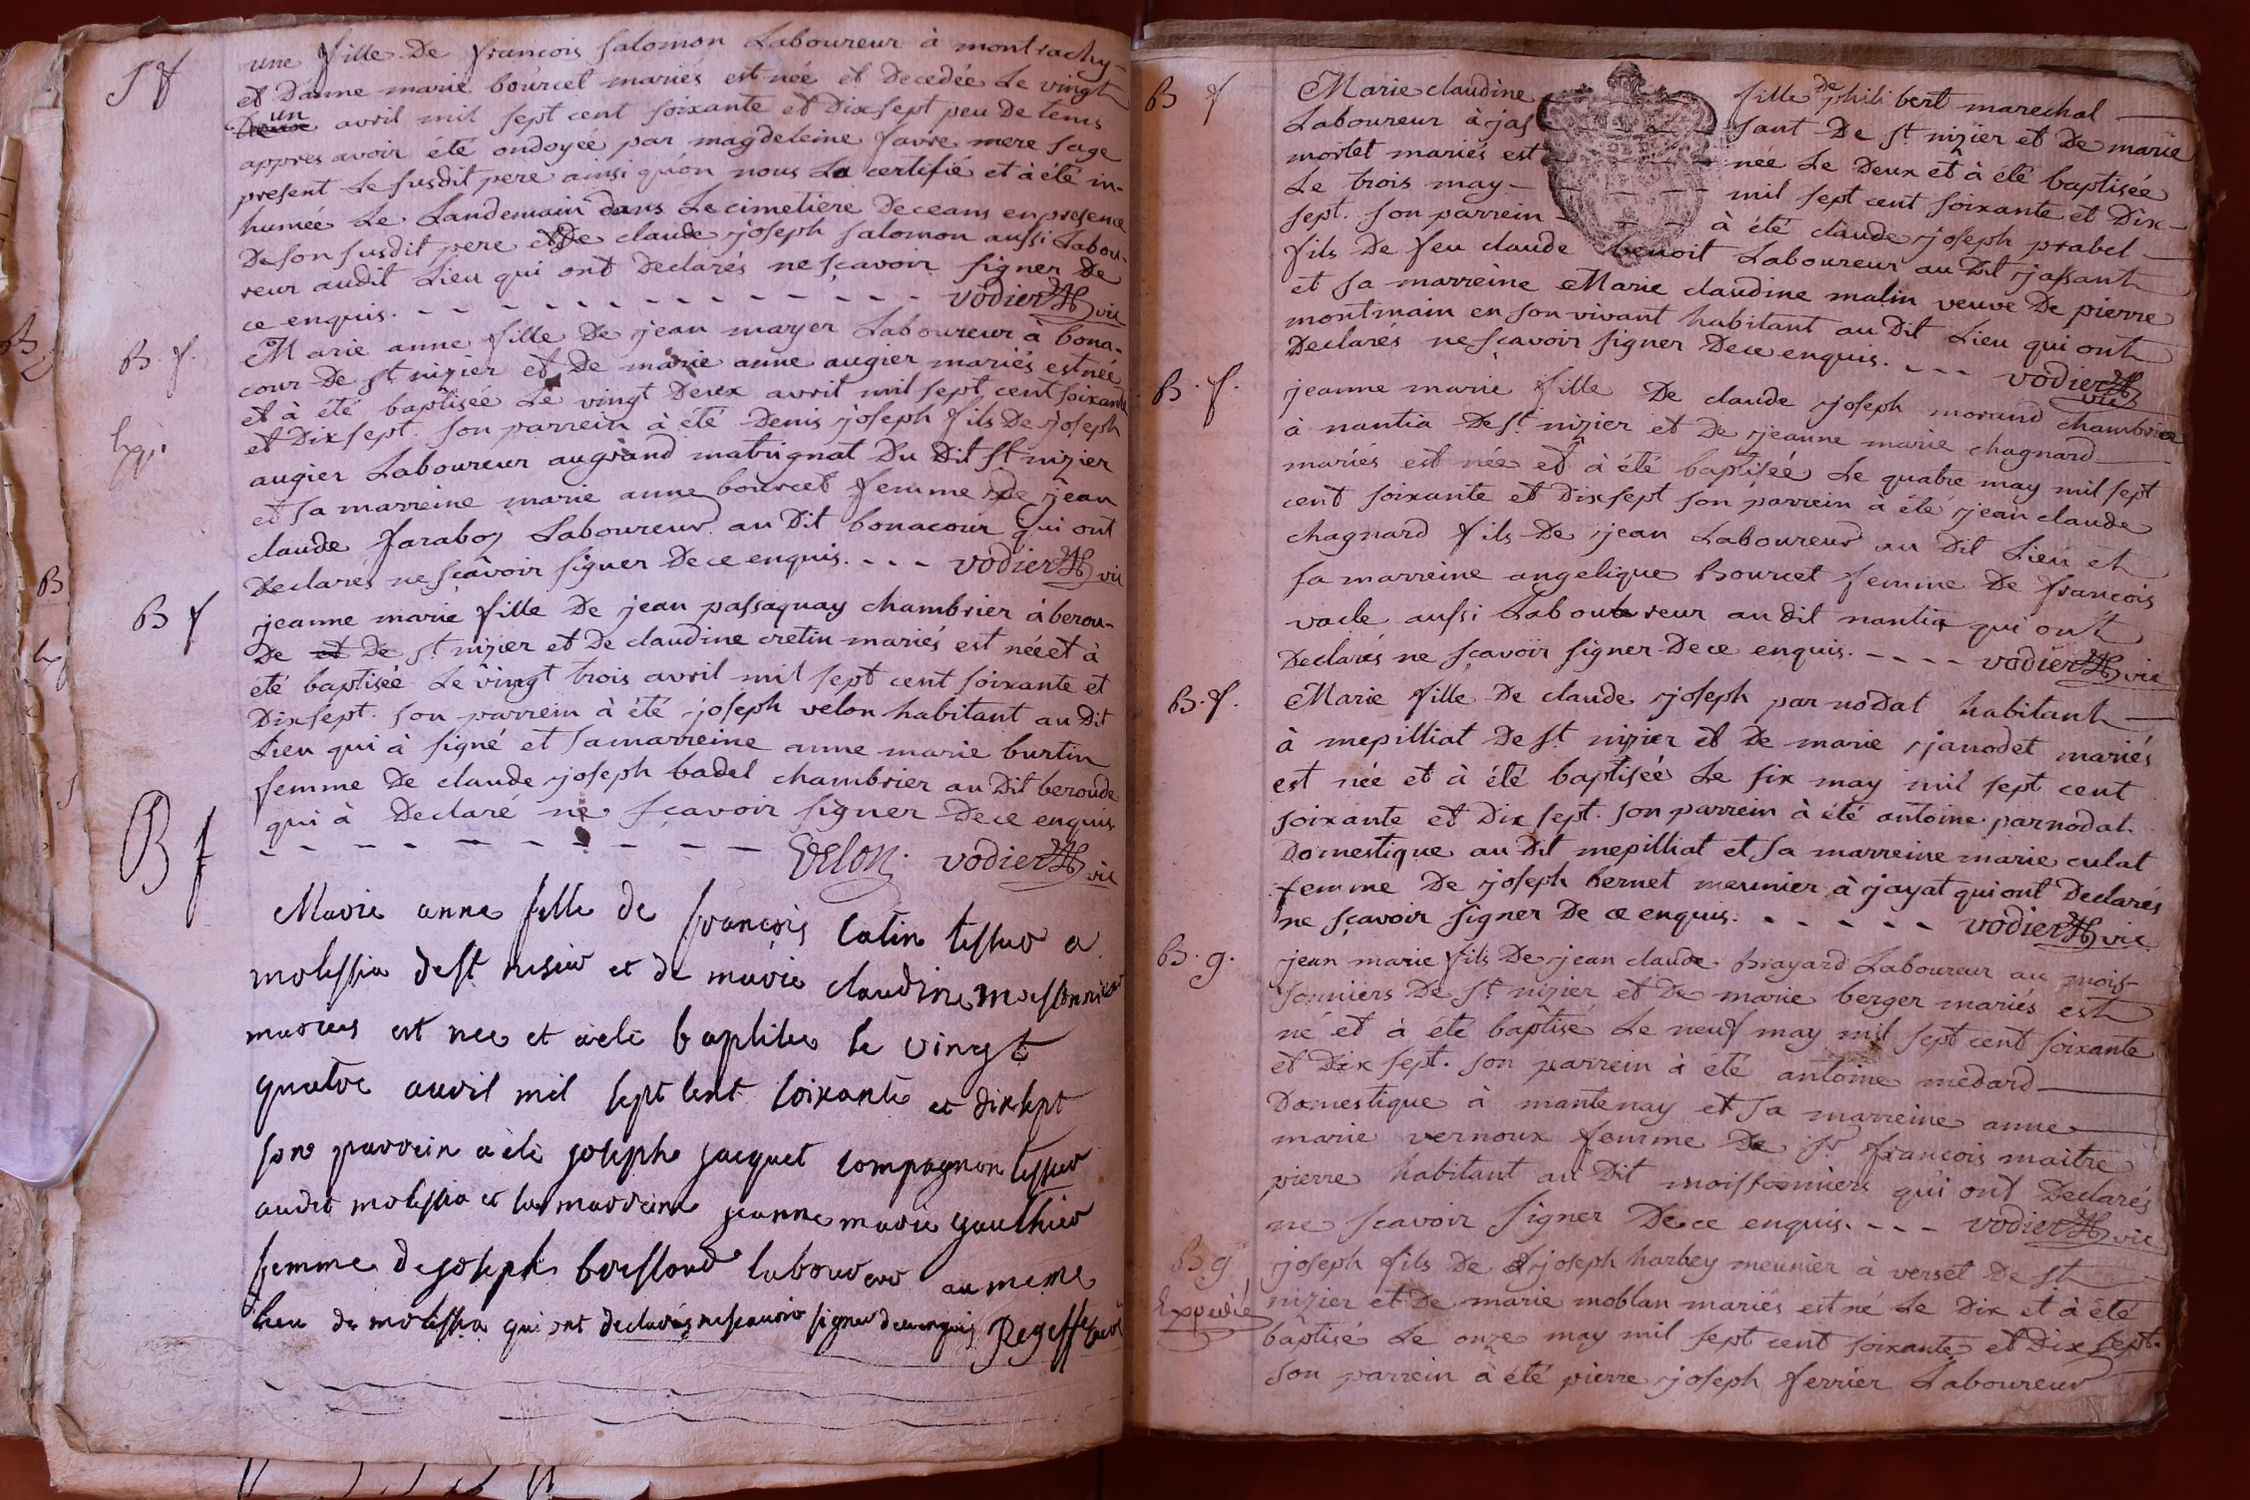 S f
une fille De francois salomon Laboureur à montrachy-
et D'anne marie bourcet mariés est née et Decedée Le vingt
un avril mil sept cent soixante et Dix sept peu De tems
appres avoir été ondoyée par magdeleine favre mere sage
present Le susdit pere ainsi qu'on nous La certifié et à été in-
humée Le Landemain dans Le cimetiere De ceans en presence
De son susdit pere et De claude joseph salomon aussi Labou-
reur audit Lieu qui ont Declarés ne sçavoir signer De
ce enquis. - - - - - - - - - - - - - vodier vic
B. f.
Marie anne fille De jean mayer Laboureur à bona-
cour De st nizier et De marie anne augier mariés est née
et à été baptisée Le vingt Deux avril mil sept cent soixante
et Dix sept. son parrein à été Denis joseph fils De joseph
augier Laboureur au grand matrignat Du Dit st nizier
et sa marreine marie anne bourcet femme De jean
claude faraboz Laboureur au Dit bonacour qui ont
Declarés ne sçavoir signer De ce enquis. - - - vodier vic
B f
jeanne marie fille De jean passaquay chambrier à berou-
De et De st nizier et De claudine cretin mariés est née et à
été baptisée Le vingt trois avril mil sept cent soixante et
Dix sept. son parrein à été joseph velon habitant au Dit
Lieu qui à signé et sa marreine anne marie burtin
femme De claude joseph badel chambrier au Dit beroude
qui à Declaré ne sçavoir signer De ce enquis
- - - - - - - - - - Velon. vodier vic
B f
Marie anne fille de françois Catin tessier a
molissia de st nisier et de marie claudine moissonnier
maries est nee et a ete baptisee le vingt
quatre avril mil sept cent soixante et dix sept
son parrein a ete joseph jacquet compagnon tessier
audit molissia et sa marreine jeanne marie gauthier
femme de joseph boissond laboureur au meme
lieu de molissia qui ont declarés ne scavoir signer de ce enquis Regeffe
B f
Marie claudine fille De phili bert marechal
Laboureur à jas sant De st nizier et De marie
mortet mariés est née Le Deux et à été baptisée
Le trois may mil sept cent soixante et Dix-
sept. son parrein à été claude joseph prabel
fils De feu claude benoit Laboureur au Dit jassant
et sa marreine Marie claudine malin veuve De pierre
montmain en son vivant habitant au Dit Lieu qui ont
Declarés ne sçavoir signer De ce enquis. - - - vodier vic
B. f.
jeanne marie fille De claude joseph morand chambrier
à nantia De st nizier et De jeanne marie chagnard
mariés est née et à été baptisée Le quatre may mil sept
cent soixante et Dix sept son parrein à été jean claude
chagnard fils De jean Laboureur au Dit Lieu et
sa marreine angelique Bourcet femme De françois
vacle aussi Laboureur au dit nantia qui ont
Declarés ne sçavoir signer De ce enquis. - - - - vodier vic
B. f.
Marie fille De claude joseph par nodat habitant
à mepilliat De st nizier et De marie janodet mariés
est née et à été baptisée Le six may mil sept cent
soixante et Dix sept. son parrein à été antoine parnodat
Domestique au Dit mepilliat et sa marreine marie culat
femme De joseph bernet meunier à jayat qui ont Declarés
ne sçavoir signer De ce enquis. - - - - - vodier vic
B. g.
jean marie fils De jean claude Brayard Laboureur au mois-
sonniers De st nizier et De marie berger mariés est
né et à été baptisé Le neuf may mil sept cent soixante
et Dix sept. son parrein à été antoine medard
Domestique à mantenay et sa marreine anne
marie vernoux femme De sr françois maitre
pierre habitant au Dit moissonniers qui ont Declarés
ne sçavoir signer De ce enquis. - - - vodier vic
B g
Expedié
joseph fils De joseph harbey meunier à verset De st
nizier et De marie moblan mariés est né Le Dix et à été
baptisé Le onze may mil sept cent soixante et Dix sept.
son parrein à été pierre joseph ferrier Laboureur